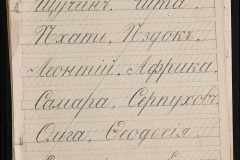 Щучинъ. Чита.
Пхати. Пздокъ.
Леонтій. Африка.
Самара. Серпуховъ.
Ольга. Ѳеодосія.